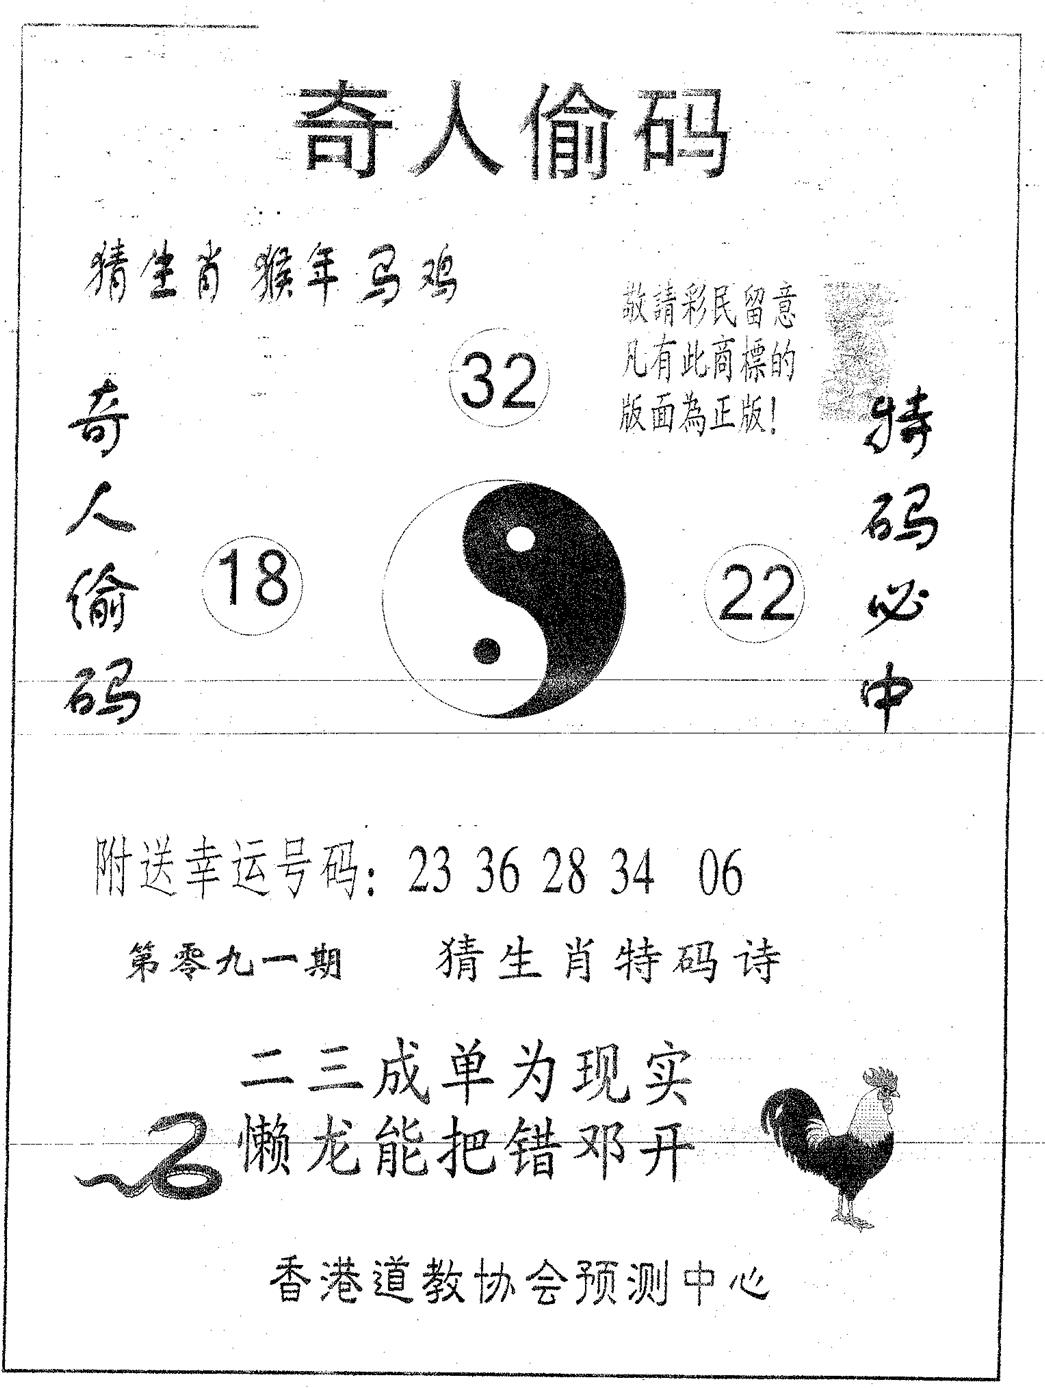 奇人偷码
猜生肖 猴年马鸡
敬請彩民留意
凡有此商標的
版面為正版！
32
奇人偷码
18
22
特码必中
附送幸运号码：23 36 28 34 06
第零九一期 猜生肖特码诗
二三成单为现实
懒龙能把错邓开
香港道教协会预测中心